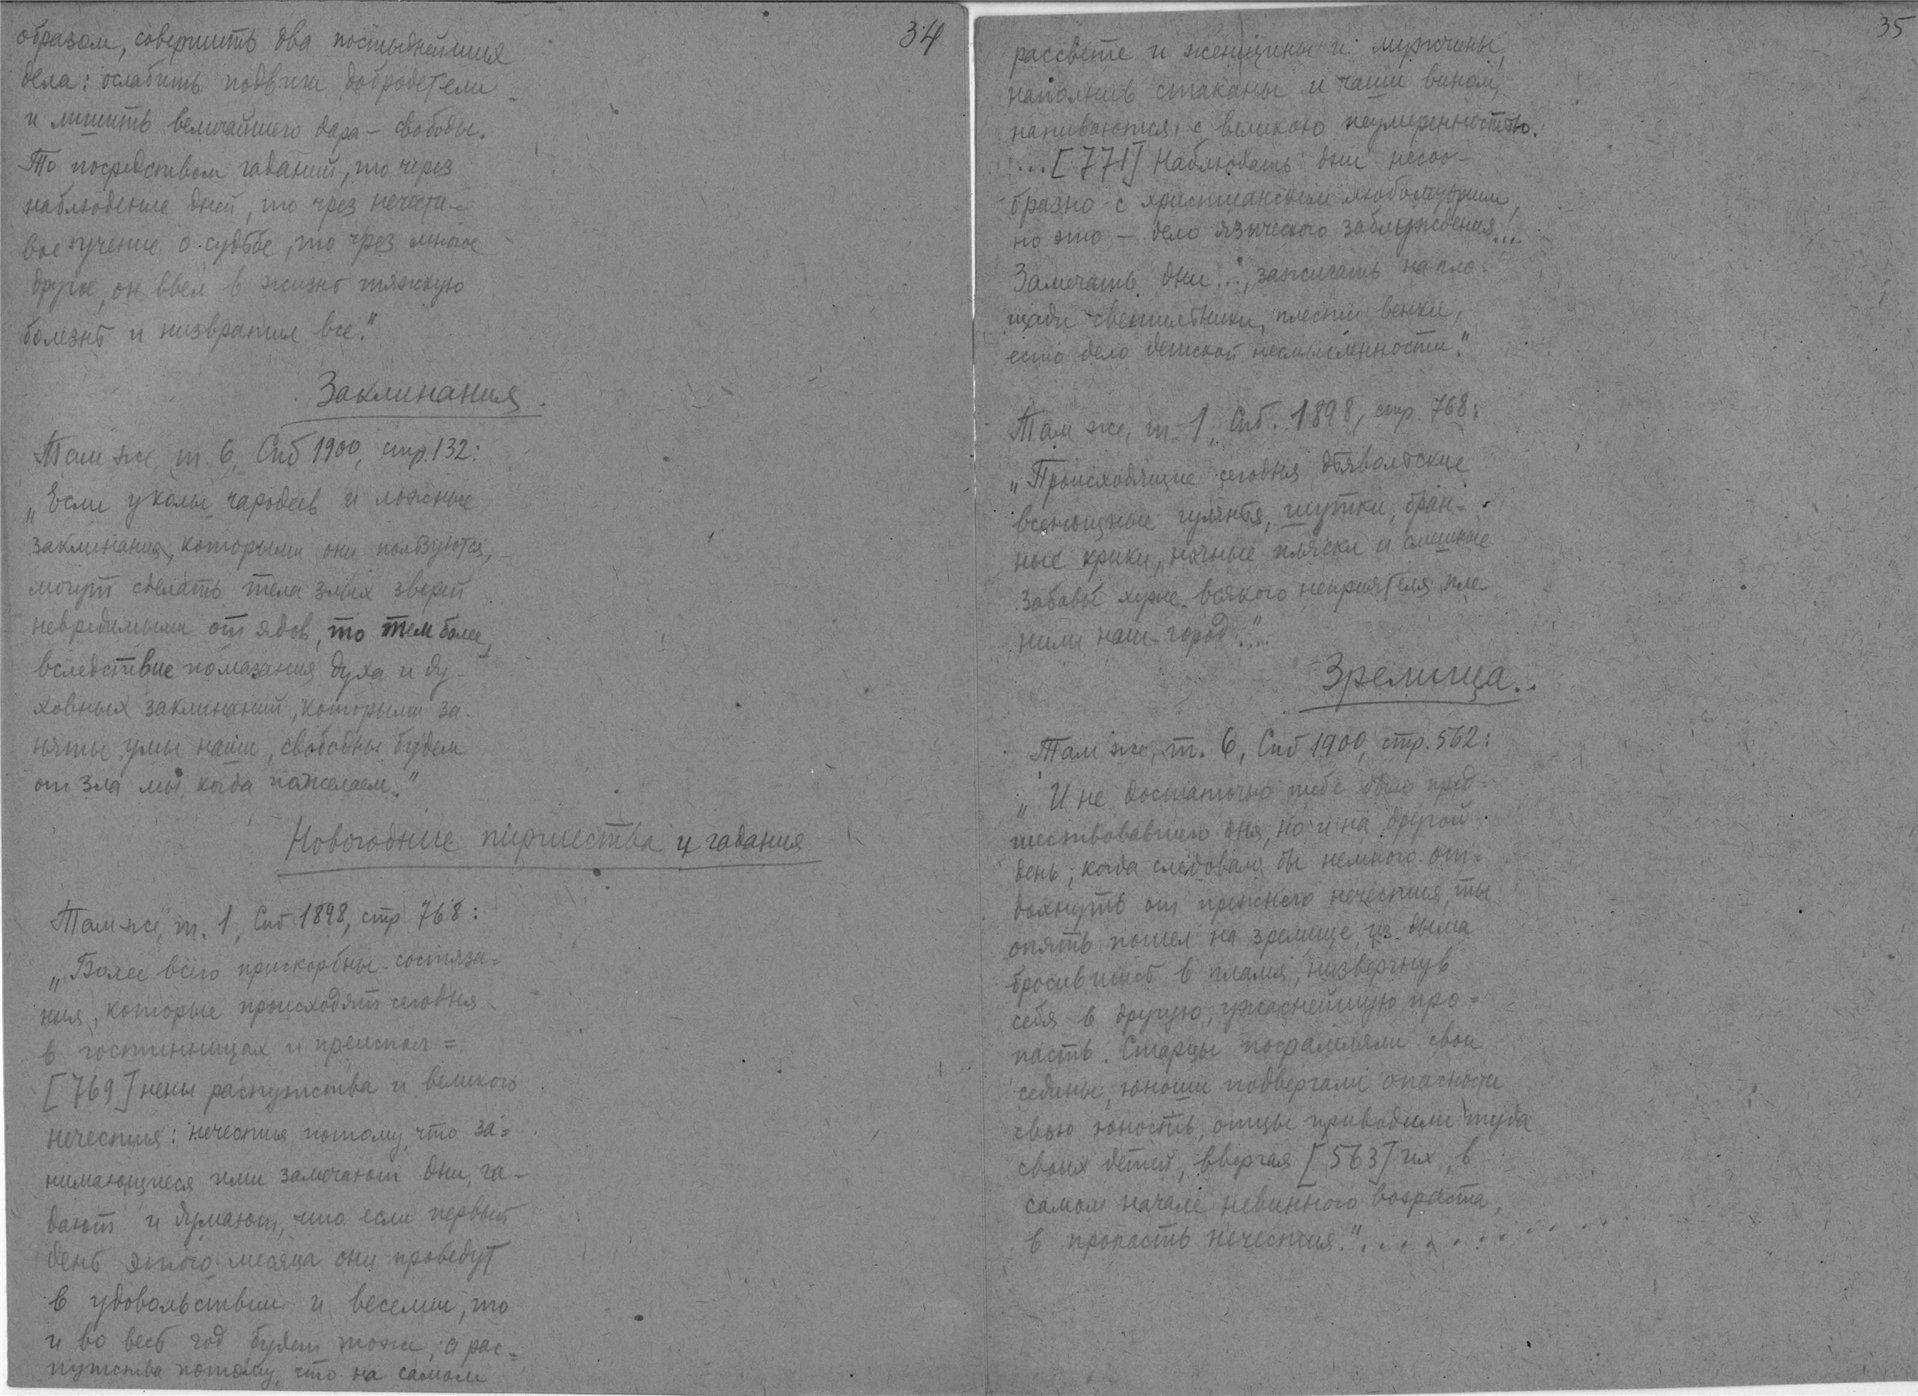 34
образом, совершить два постыднейшия
дела: ослабить подвиги добродетели
и лишить величайшего дара – свободы.
То посредством гаданий, то через
наблюдение дней, то чрез нечести-
вое учение о судьбе, то чрез многое
другое, он ввел в жизнь тяжкую
болезнь и низвратил все."
Заклинания.
Там же, т. 6, Спб 1900, стр. 132:
„Если уколы чародеев и ложные
заклинания, которыми они пользуются,
могут сделать тела злых зверей
невредимыми от ядов, то тем более,
вследствие помазания духа и ду-
ховных заклинаний, которыми за-
няты умы наши, свободны будем
от зла мы, когда пожелаем."
Новогодние пиршества и гадания
Там же, т. 1, Спб 1898, стр 768:
„Более всего прискорбны состяза=
ния, которые происходят сегодня
в гостинницах и преиспол=
[769] нены распутства и великого
нечестия: нечестия потому, что за=
нимающиеся ими замечают дни, га-
дают и думают, что если первый
день этого месяца они проведут
в удовольствии и веселии, то
и во весь год будет тоже, а рас=
путства потому, что на самом
35
рассвете и женщины и мужчины,
наполнив стаканы и чаши вином,
напиваются с великою неумеренностью.
...[771] Наблюдать дни несоо-
бразно с христианским любомудрием,
но это – дело языческого заблуждения...
Замечать дни..., зажигать на пло-
щади светильники, плести венки,
есть дело детской несмысленности."
Там же, т. 1, Спб. 1898, стр. 768:
„Происходящие сегодня дьявольские
всенощные гулянья, шутки, бран-
ные крики, ночные пляски и смешные
забавы хуже всякого неприятеля пле-
нили наш город..."
Зрелища.
Там же, т. 6, Спб 1900, стр. 562:
„И не достаточно тебе было пред-
шествовавшего дня, но и на другой
день, когда следовало бы немного от=
дохнуть от прежнего нечестия, ты
опять пошел на зрелище, из дыма
бросившись в пламя, низвергнув
себя в другую, ужаснейшую про=
пасть. Старцы посрамляли свои
седины, юноши подвергали опасности
свою юность, отцы приводили туда
своих детей, ввергая [563] их, в
самом начале невинного возраста,
в пропасть нечестия."..........